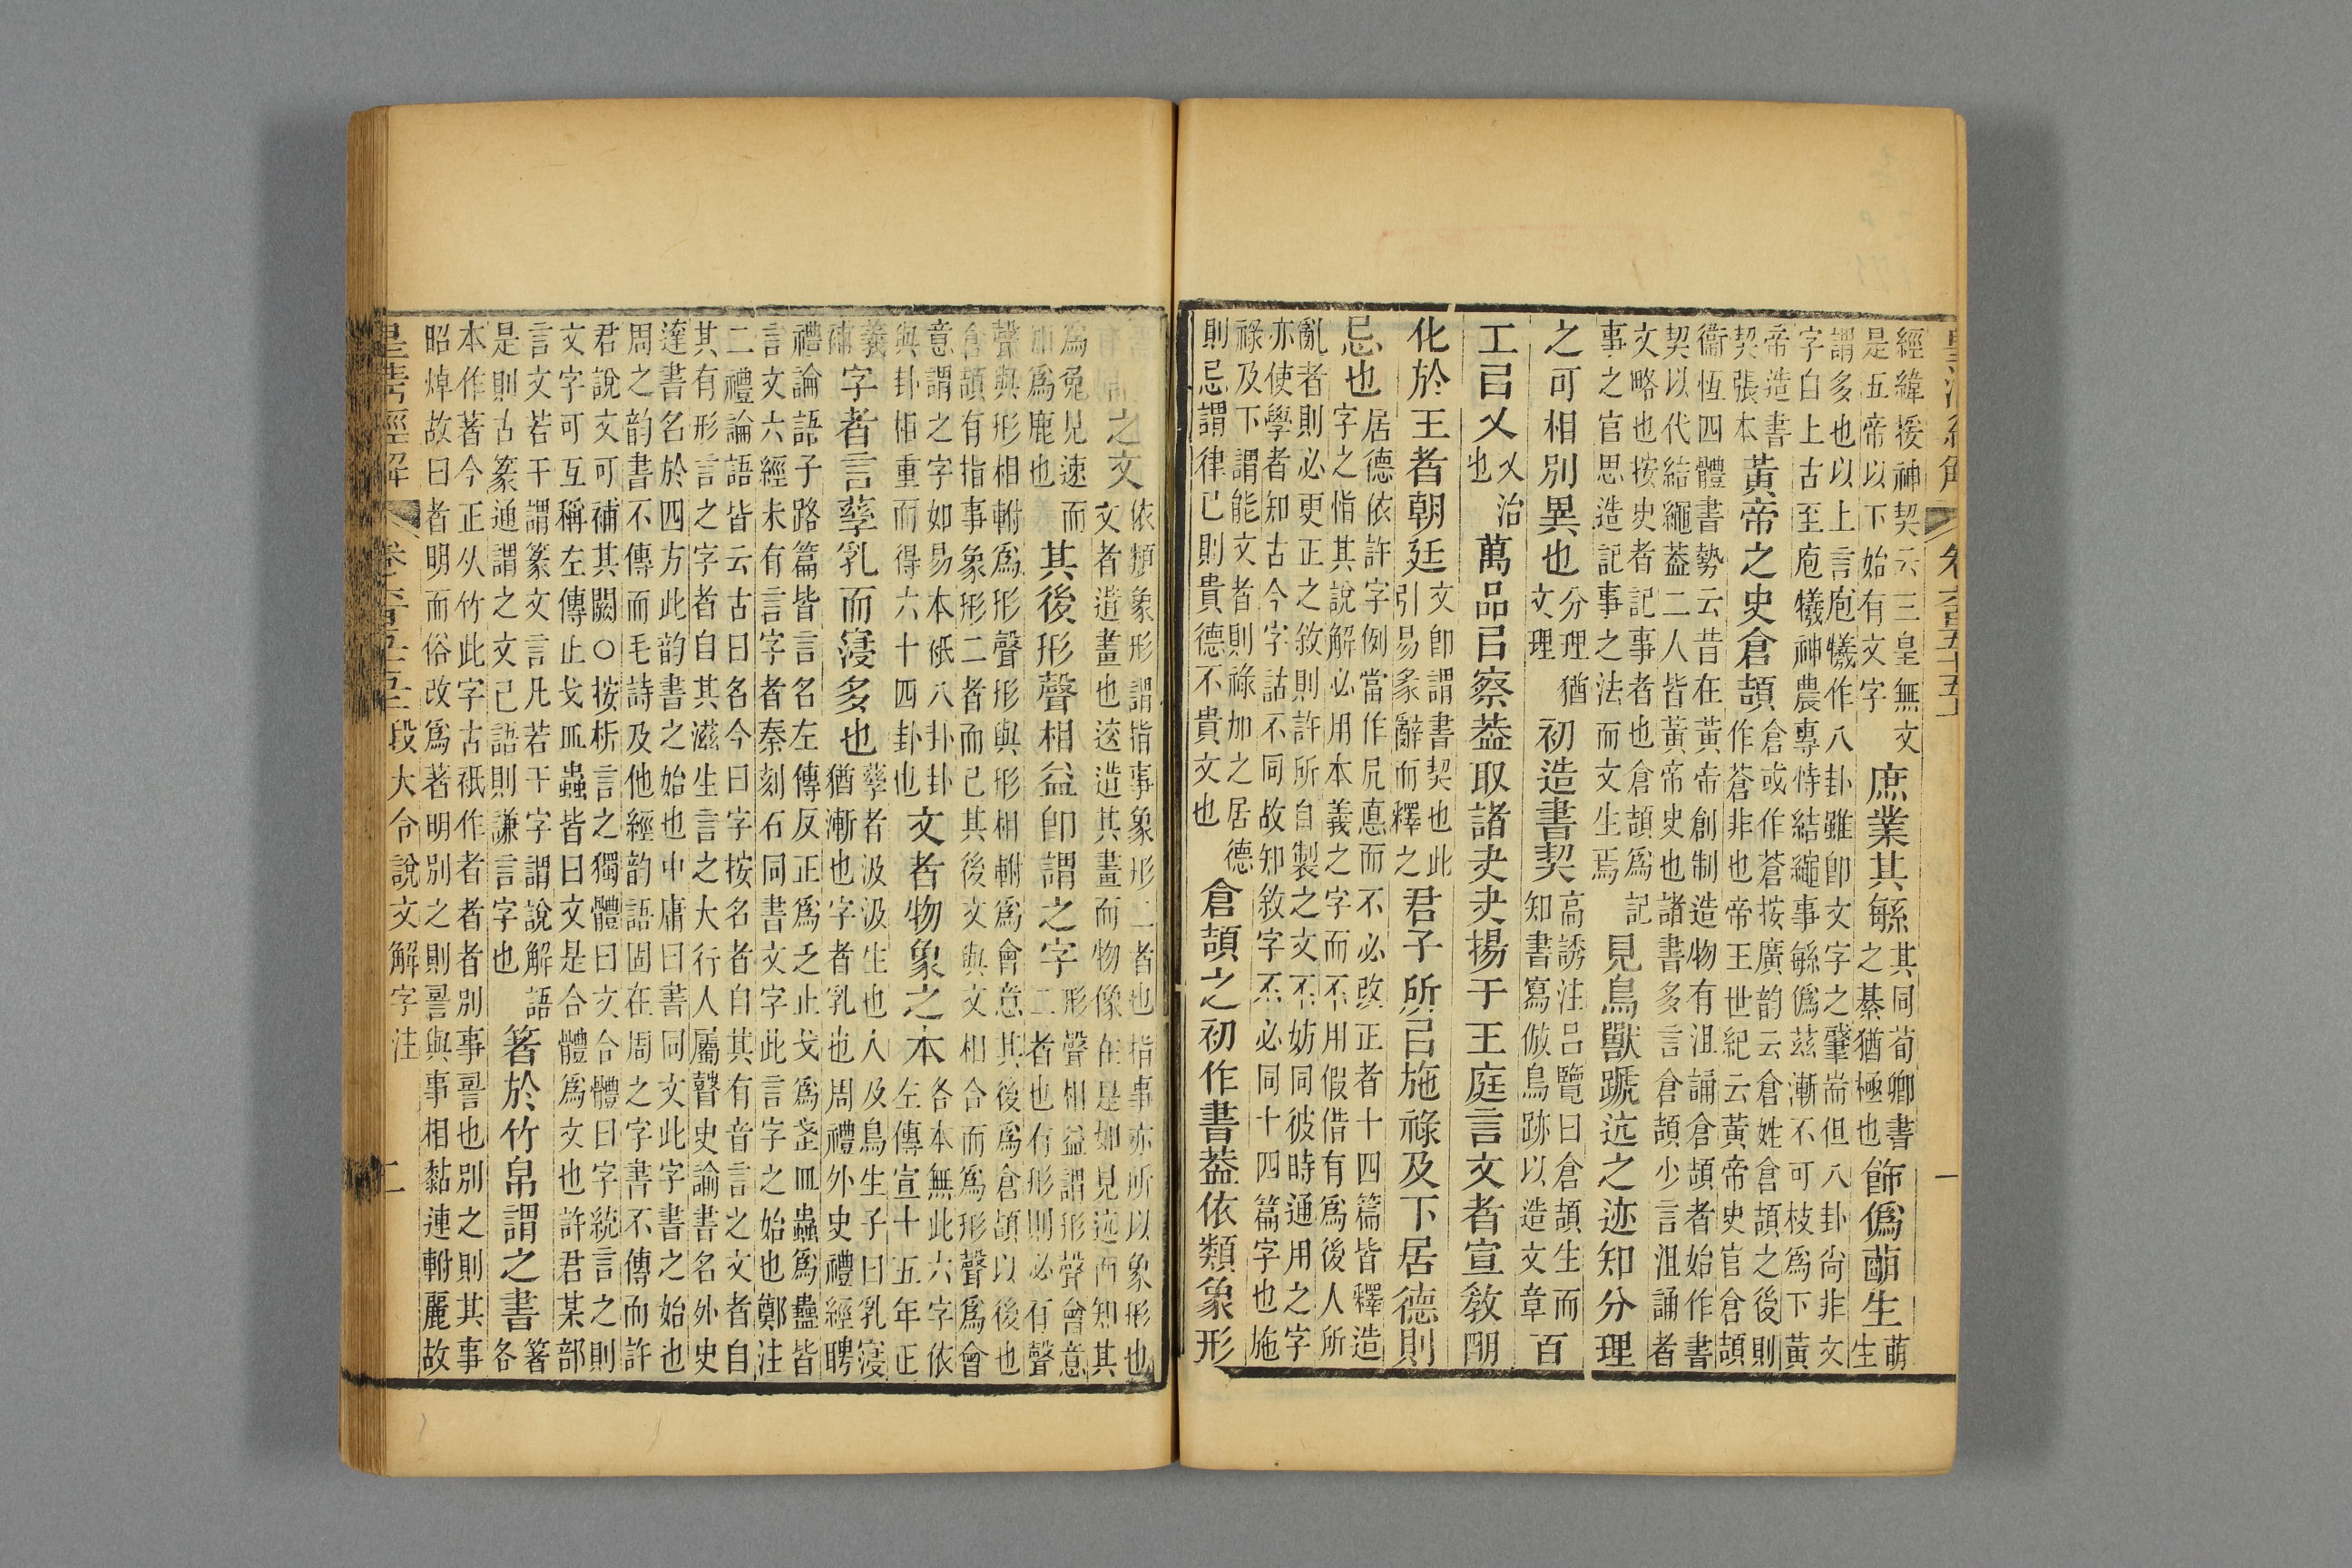 皇清經解 卷六百五十五上 一
經緯援神契云三皇無文是五帝以下始有文字庶業其緐其同荀卿書之綦猶極也飾僞萌生萌生
謂多也以上言庖犧作八卦雖卽文字之肈耑但八卦尙非文字自上古至庖犧神農專恃結繩事緐僞茲漸不可枝爲下黃
帝造書契張本黃帝之史倉頡倉或作蒼按廣韵云倉姓倉頡之後則作蒼非也帝王世紀云黃帝史官倉頡
衞恆四體書勢云昔在黃帝創制造物有沮誦倉頡者始作書契以代結繩葢二人皆黃帝史也諸書多言倉頡少言沮誦者
文略也按史者記事者也倉頡爲記事之官思造記事之法而文生焉見鳥獸蹏迒之迹知分理
之可相別異也分理猶文理初造書契高誘注呂覽曰倉頡生而知書寫倣鳥跡以造文章百
工㠯乂乂治也萬品㠯察葢取諸夬夬揚于王庭言文者宣敎朙
化於王者朝廷文卽謂書契也此引易彖辭而釋之君子所㠯施祿及下居德則
忌也居德依許字例當作凥悳而不必改正者十四篇皆釋造字之恉其說解必用本義之字而不用假借有爲後人所
亂者則必更正之敘則許所自製之文不妨同彼時通用之字亦使學者知古今字詁不同故知敘字不必同十四篇字也施
祿及下謂能文者則祿加之居德則忌謂律己則貴德不貴文也倉頡之初作書葢依類象形
故謂之文依類象形謂指事象形二者也指事亦所以象形也文者逪畫也䢒逪其畫而物像在是如見迒而知其
爲兔見速而知爲鹿也其後形聲相益卽謂之字形聲相益謂形聲會意二者也有形則必有聲
聲與形相軵爲形聲形與形相軵爲會意其後爲倉頡以後也倉頡有指事象形二者而已其後文與文相合而爲形聲爲會
意謂之字如易本祗八卦卦與卦相重而得六十四卦也文者物象之本各本無此六字依左傳宣十五年正
義補字者言孳乳而寖多也孳者汲汲生也人及鳥生子曰乳寖猶漸也字者乳也周禮外史禮經聘
禮論語子路篇皆言名左傳反正爲乏止戈爲武皿蟲爲蠱皆言文六經未有言字者秦刻石同書文字此言字之始也鄭注
二禮論語皆云古曰名今曰字按名者自其有音言之文者自其有形言之字者自其滋生言之大行人屬瞽史諭書名外史
達書名於四方此韵書之始也中庸曰書同文此字書之始也周之韵書不傳而毛詩及他經韵語固在周之字書不傳而許
君說文可補其闕○按析言之獨體曰文合體曰字統言之則文字可互稱左傳止戈皿蟲皆曰文是合體爲文也許君某部
言文若干謂篆文言凡若干字謂說解語是則古篆通謂之文己語則謙言字也箸於竹帛謂之書箸各
本作著今正从竹此字古祗作者者者別事䛐也別之則其事昭焯故曰者明而俗改爲著明別之則䛐與事相黏連軵麗故
皇清經解 卷六百五十五上 段大令說文解字注 二